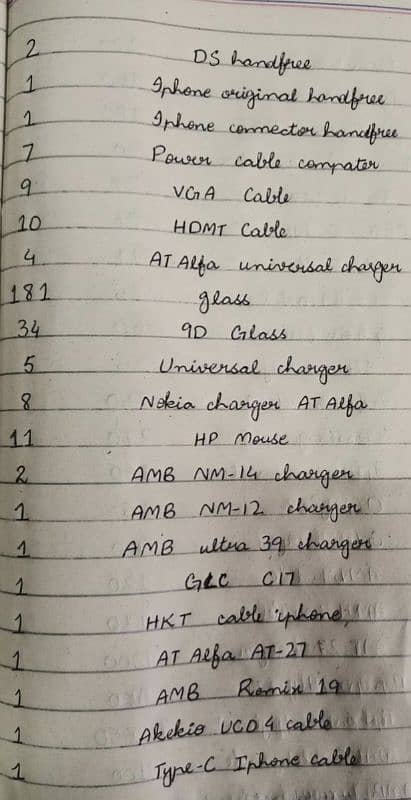 2 DS handfree
1 Iphone original handfree
1 Iphone connector handfree
7 Power cable compater
9 VGA Cable
10 HDMT Cable
4 AT Alfa universal charger
181 glass
34 9D Glass
5 Universal charger
8 Nokia charger AT Alfa
11 HP Mouse
2 AMB NM-14 charger
1 AMB NM-12 charger
1 AMB ultra 39 charger
1 GLC C17
1 HKT cable iphone
1 AT Alfa AT-27
1 AMB Remix 19
1 Akekio UCO4 cable
1 Type-C Iphone cable